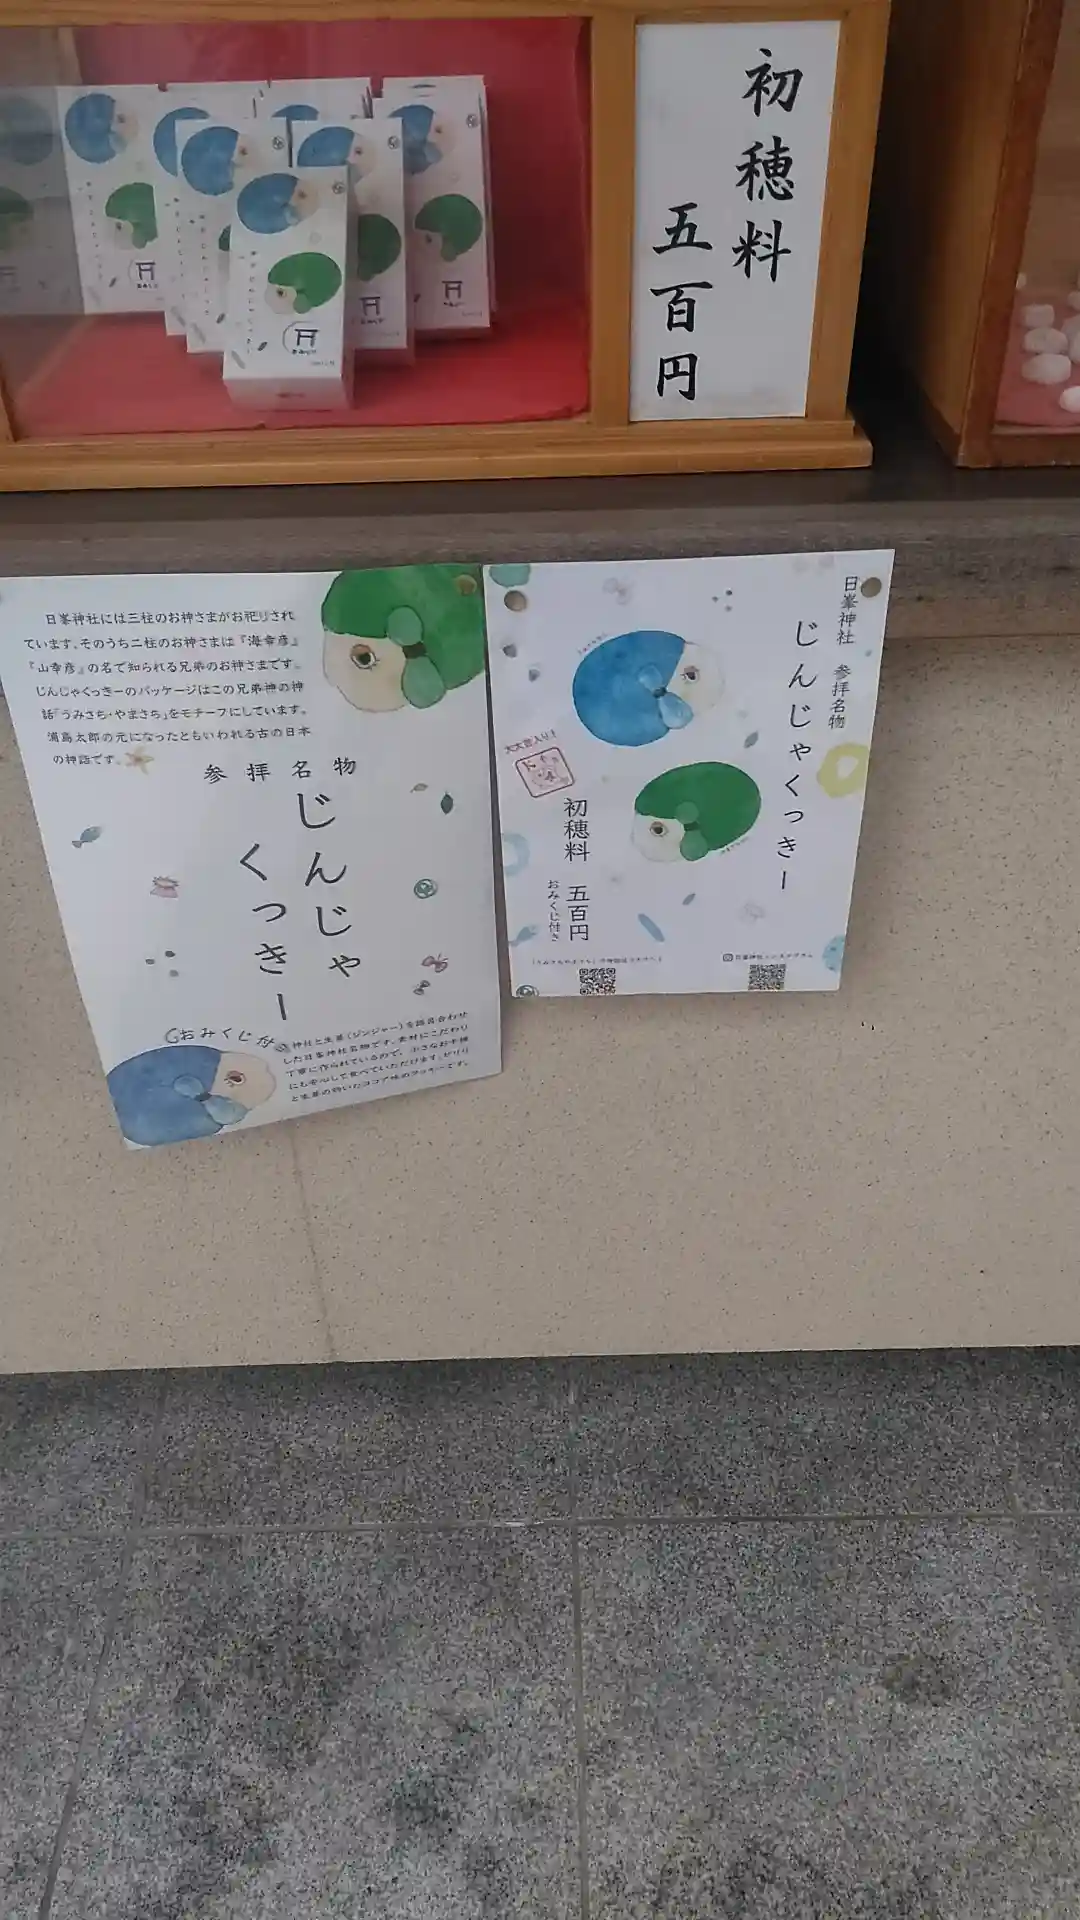 初穂料
五百円
日峯神社には三柱のお神さまがお祀りされ
ています。そのうち二柱のお神さまは『海幸彦』
『山幸彦』の名で知られる兄弟のお神さまです。
じんじゃくっきーのパッケージはこの兄弟神の神
話「うみさち・やまさち」をモチーフにしています。
浦島太郎の元になったともいわれる古の日本
の神話です。
参拝名物
じんじゃ
くっきー
おみくじ付
神社と生姜(ジンジャー)を語呂合わせ
した日峯神社名物です。素材にこだわり
丁寧に作られているので、小さなお子様
にも安心して食べていただけます。ピリリ
と生姜の効いたココア味のクッキーです。
日峯神社 参拝名物
じんじゃくっきー
大大吉入り!
初穂料 五百円
おみくじ付き
日峯神社インスタグラム